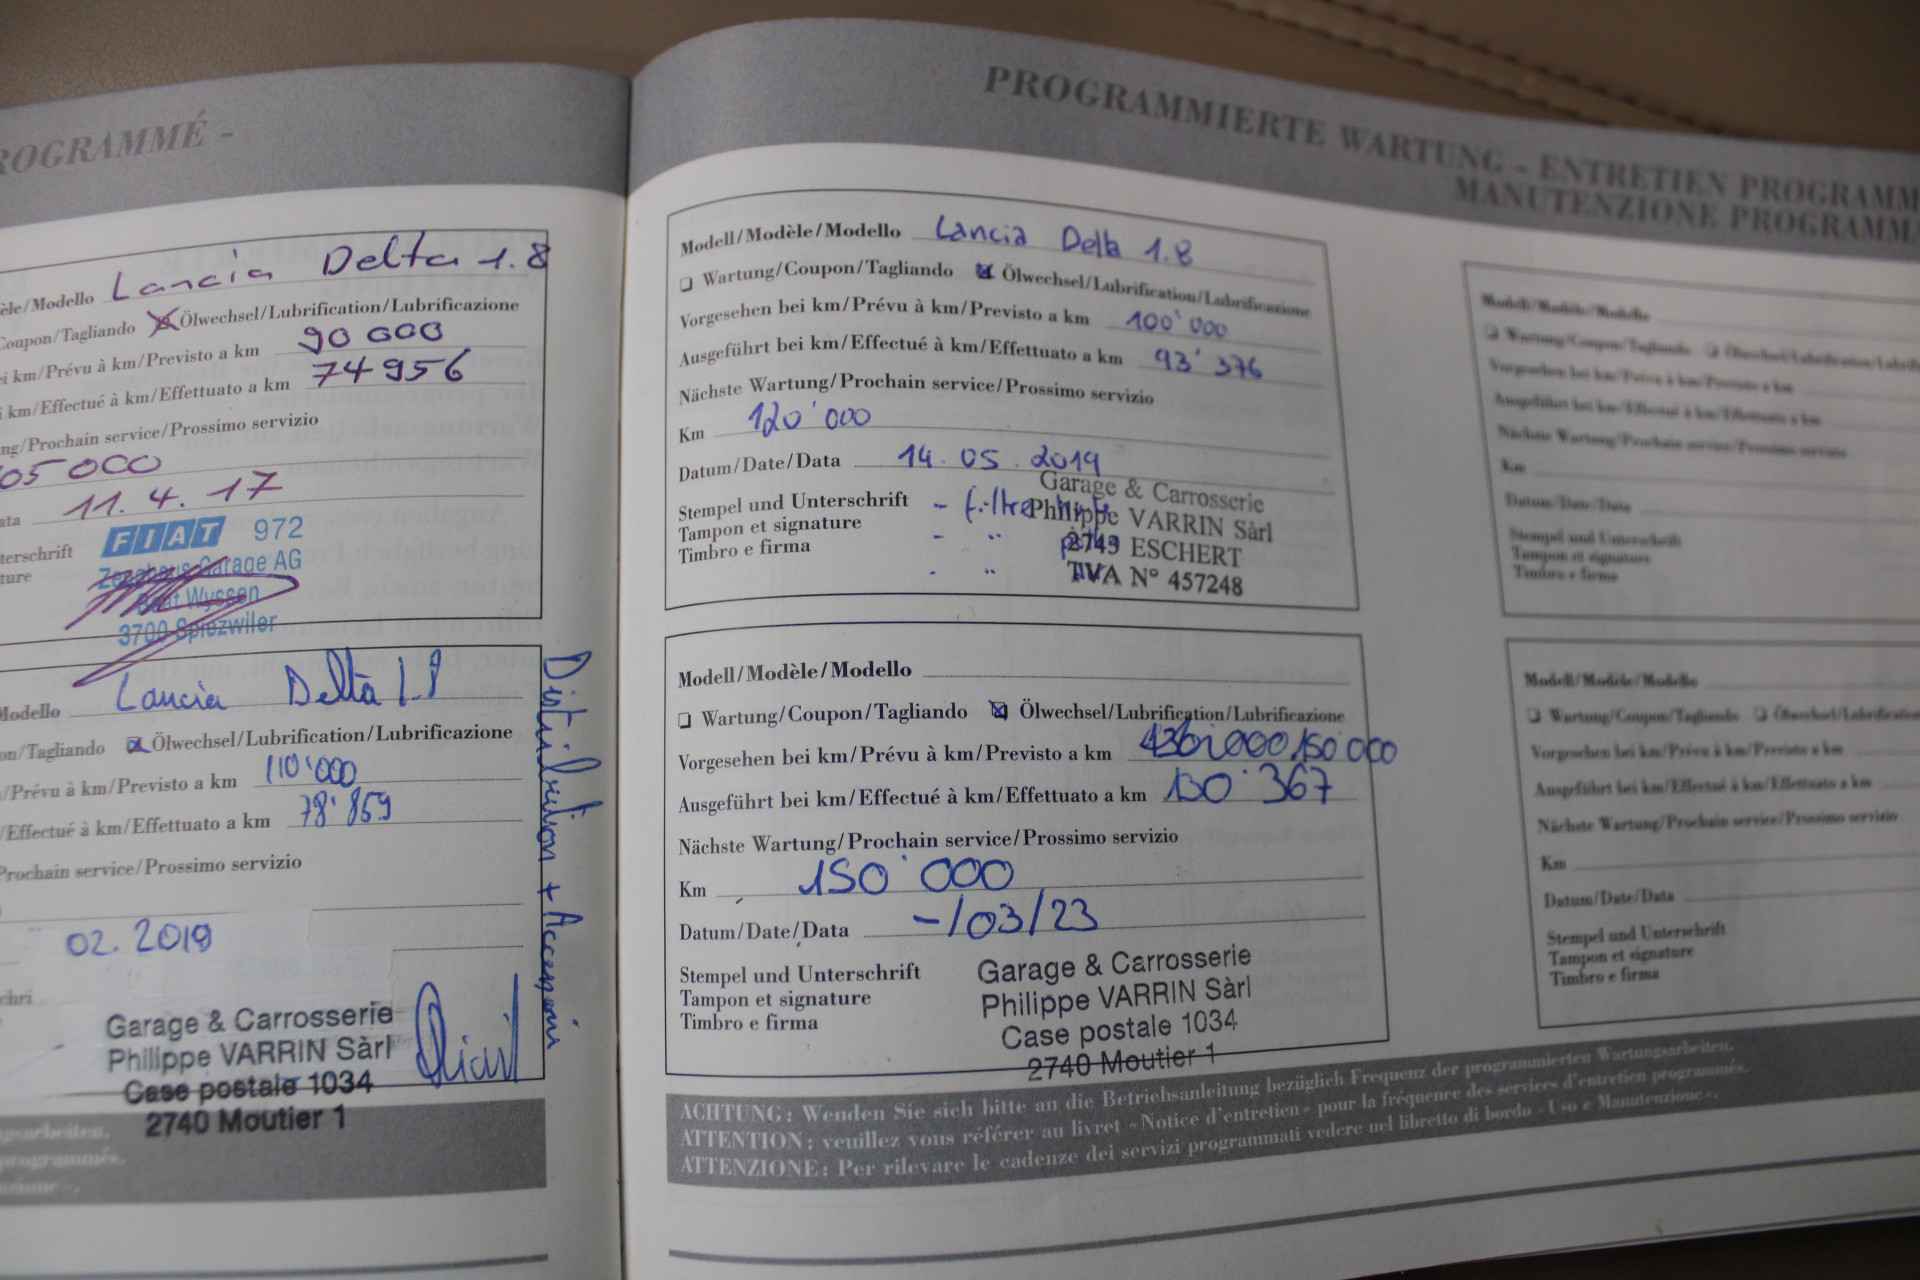 ROGRAMMÉ -
èle/Modello Lancia Delta 1.8
Coupon/Tagliando Ölwechsel/Lubrification/Lubrificazione
ei km/Prévu à km/Previsto a km 90 000
i km/Effectué à km/Effettuato a km 74956
ng/Prochain service/Prossimo servizio
05 000
ata 11.4.17
terschrift FIAT 972
ture Garage AG
Wyssen
3700 Spiezwiler
Modello Lancia Delta 1.8
on/Tagliando Ölwechsel/Lubrification/Lubrificazione
/Prévu à km/Previsto a km 110'000
/Effectué à km/Effettuato a km 78'859
Prochain service/Prossimo servizio
02. 2019
chri
Garage & Carrosserie
Philippe VARRIN Sàrl
Case postale 1034
2740 Moutier 1
Distribution + Accessoir
gsarbeiten.
programmés.
PROGRAMMIERTE WARTUNG - ENTRETIEN PROGRAMM
MANUTENZIONE PROGRAMM
Modell/Modèle/Modello Lancia Delta 1.8
Wartung/Coupon/Tagliando Ölwechsel/Lubrification/Lubrificazione
Vorgesehen bei km/Prévu à km/Previsto a km 100'000
Ausgeführt bei km/Effectué à km/Effettuato a km 93'376
Nächste Wartung/Prochain service/Prossimo servizio
Km 120'000
Datum/Date/Data 14.05.2019
Stempel und Unterschrift - filtre
Tampon et signature - "
Timbro e firma - "
Garage & Carrosserie
Philippe VARRIN Sàrl
2743 ESCHERT
TVA N° 457248
Modell/Modèle/Modello
Wartung/Coupon/Tagliando Ölwechsel/Lubrification/Lubrificazione
Vorgesehen bei km/Prévu à km/Previsto a km 150'000
Ausgeführt bei km/Effectué à km/Effettuato a km 130'367
Nächste Wartung/Prochain service/Prossimo servizio
Km 150'000
Datum/Date/Data -/03/23
Stempel und Unterschrift
Tampon et signature
Timbro e firma
Garage & Carrosserie
Philippe VARRIN Sàrl
Case postale 1034
2740 Moutier 1
ACHTUNG: Wenden Sie sich bitte an die Betriebsanleitung bezüglich Frequenz der programmierten Wartungsarbeiten.
ATTENTION: veuillez vous référer au livret «Notice d'entretien» pour la fréquence des services d'entretien programmés.
ATTENZIONE: Per rilevare le cadenze dei servizi programmati vedere nel libretto di bordo «Uso e Manutenzione».
Modell/Modèle/Modello
Wartung/Coupon/Tagliando Ölwechsel/Lubrification/Lubrifi
Vorgesehen bei km/Prévu à km/Previsto a km
Ausgeführt bei km/Effectué à km/Effettuato a km
Nächste Wartung/Prochain service/Prossimo servizio
Km
Datum/Date/Data
Stempel und Unterschrift
Tampon et signature
Timbro e firma
Modell/Modèle/Modello
Wartung/Coupon/Tagliando Ölwechsel/Lubrification
Vorgesehen bei km/Prévu à km/Previsto a km
Ausgeführt bei km/Effectué à km/Effettuato a km
Nächste Wartung/Prochain service/Prossimo servizio
Km
Datum/Date/Data
Stempel und Unterschrift
Tampon et signature
Timbro e firma